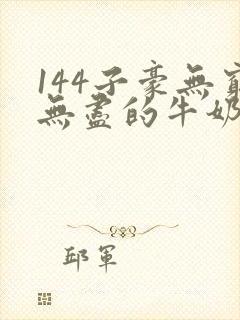 144子豪無窮
無盡的牛奶
邱軍